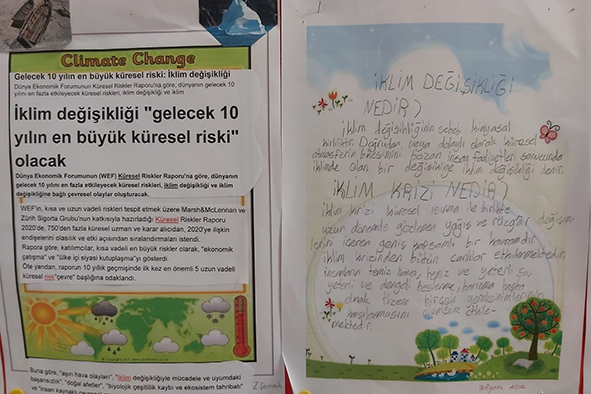 Climate Change
Gelecek 10 yılın en büyük küresel riski: İklim değişikliği
Dünya Ekonomik Forumunun Küresel Riskler Raporu'na göre, dünyanın gelecek 10
yılını en fazla etkileyecek küresel riskleri, iklim değişikliği ve iklim
İklim değişikliği "gelecek 10
yılın en büyük küresel riski"
olacak
Dünya Ekonomik Forumunun (WEF) Küresel Riskler Raporu'na göre, dünyanın
gelecek 10 yılını en fazla etkileyecek küresel riskleri, iklim değişikliği ve iklim
değişikliğine bağlı çevresel olaylar oluşturacak.
WEF'in, kısa ve uzun vadeli riskleri tespit etmek üzere Marsh&McLennan ve
Zürih Sigorta Grubu'nun katkısıyla hazırladığı Küresel Riskler Raporu
2020'de, 750'den fazla küresel uzman ve karar alıcıdan, 2020'ye ilişkin
endişelerini olasılık ve etki açısından sıralandırmaları istendi.
Rapora göre, katılımcılar, kısa vadeli en büyük riskler olarak, "ekonomik
çatışma" ve "ülke içi siyasi kutuplaşma"yı gösterdi.
Öte yandan, raporun 10 yıllık geçmişinde ilk kez en önemli 5 uzun vadeli
küresel risk "çevre" başlığına odaklandı.
Buna göre, "aşırı hava olayları", "iklim değişikliğiyle mücadele ve uyumdaki
başarısızlık", "doğal afetler", "biyolojik çeşitlilik kaybı ve ekosistem tahribatı"
ve "insan kaynaklı
İKLİM DEĞİŞİKLİĞİ
NEDİR)
İklim değişikliğinin sebebi kimyasal
kirliliktir. Doğrudan veya dolaylı olarak küresel
atmosferin bileşimini bozan insan faaliyetleri sonucunda
iklimde olan bir değişikliğe iklim değişikliği denir.
İKLİM KRİZİ NEDİR)
İklim krizi küresel ısınma ile birlikte
uzun dönemde gözlenen yağış ve rüzgar değişim-
lerini içeren geniş kapsamlı bir kavramdır.
İklim krizinden bütün canlılar etkilenmektedir.
İnsanların temiz hava, temiz ve yeterli su,
yeterli ve dengeli beslenme, barınma başta
olmak üzere birçok gereksinimlerinin
karşılanmasını güncüz etkile-
mektedir.